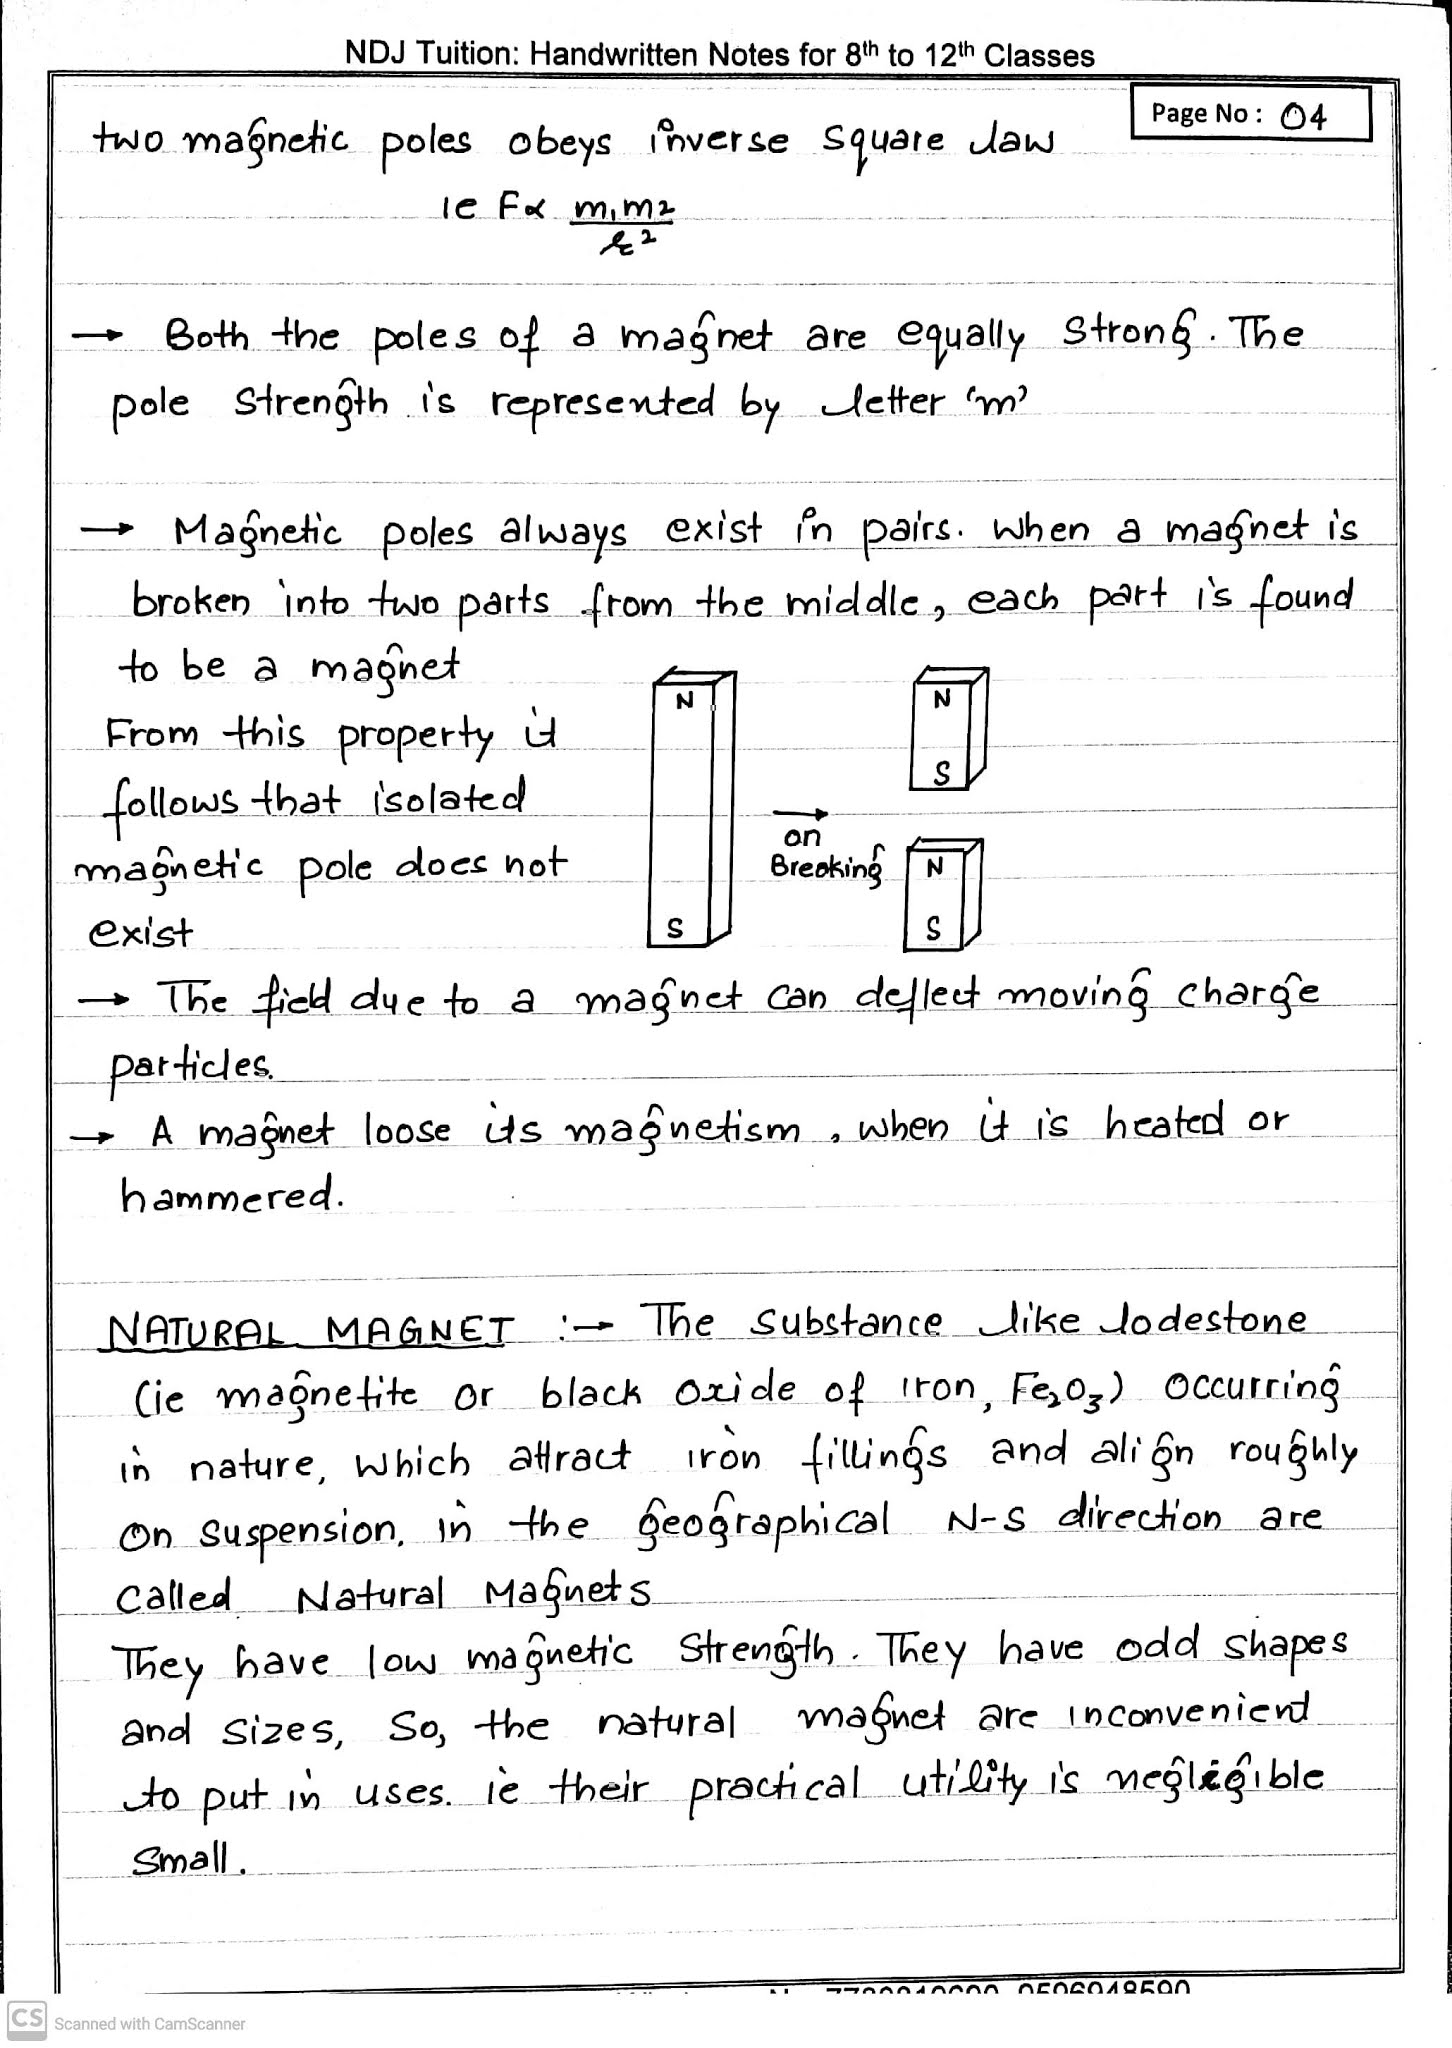 NDJ Tuition: Handwritten Notes for 8th to 12th Classes
Page No : 04
two magnetic poles obeys inverse square law
ie F∝ m₁m₂
r²
→ Both the poles of a magnet are equally strong. The
pole strength is represented by letter 'm'
→ Magnetic poles always exist in pairs. When a magnet is
broken into two parts from the middle, each part is found
to be a magnet
From this property it
follows that isolated
magnetic pole does not
exist
N
S
→
on
Breaking
N
S
N
S
→ The field due to a magnet can deflect moving charge
particles.
→ A magnet loose its magnetism, when it is heated or
hammered.
NATURAL MAGNET :→ The substance like lodestone
(ie magnetite or black oxide of iron, Fe₂O₃) occurring
in nature, which attract iron fillings and align roughly
on suspension, in the geographical N-S direction are
called Natural Magnets
They have low magnetic strength. They have odd shapes
and sizes, So, the natural magnet are inconvenient
to put in uses. ie their practical utility is negligible
small.
CS Scanned with CamScanner